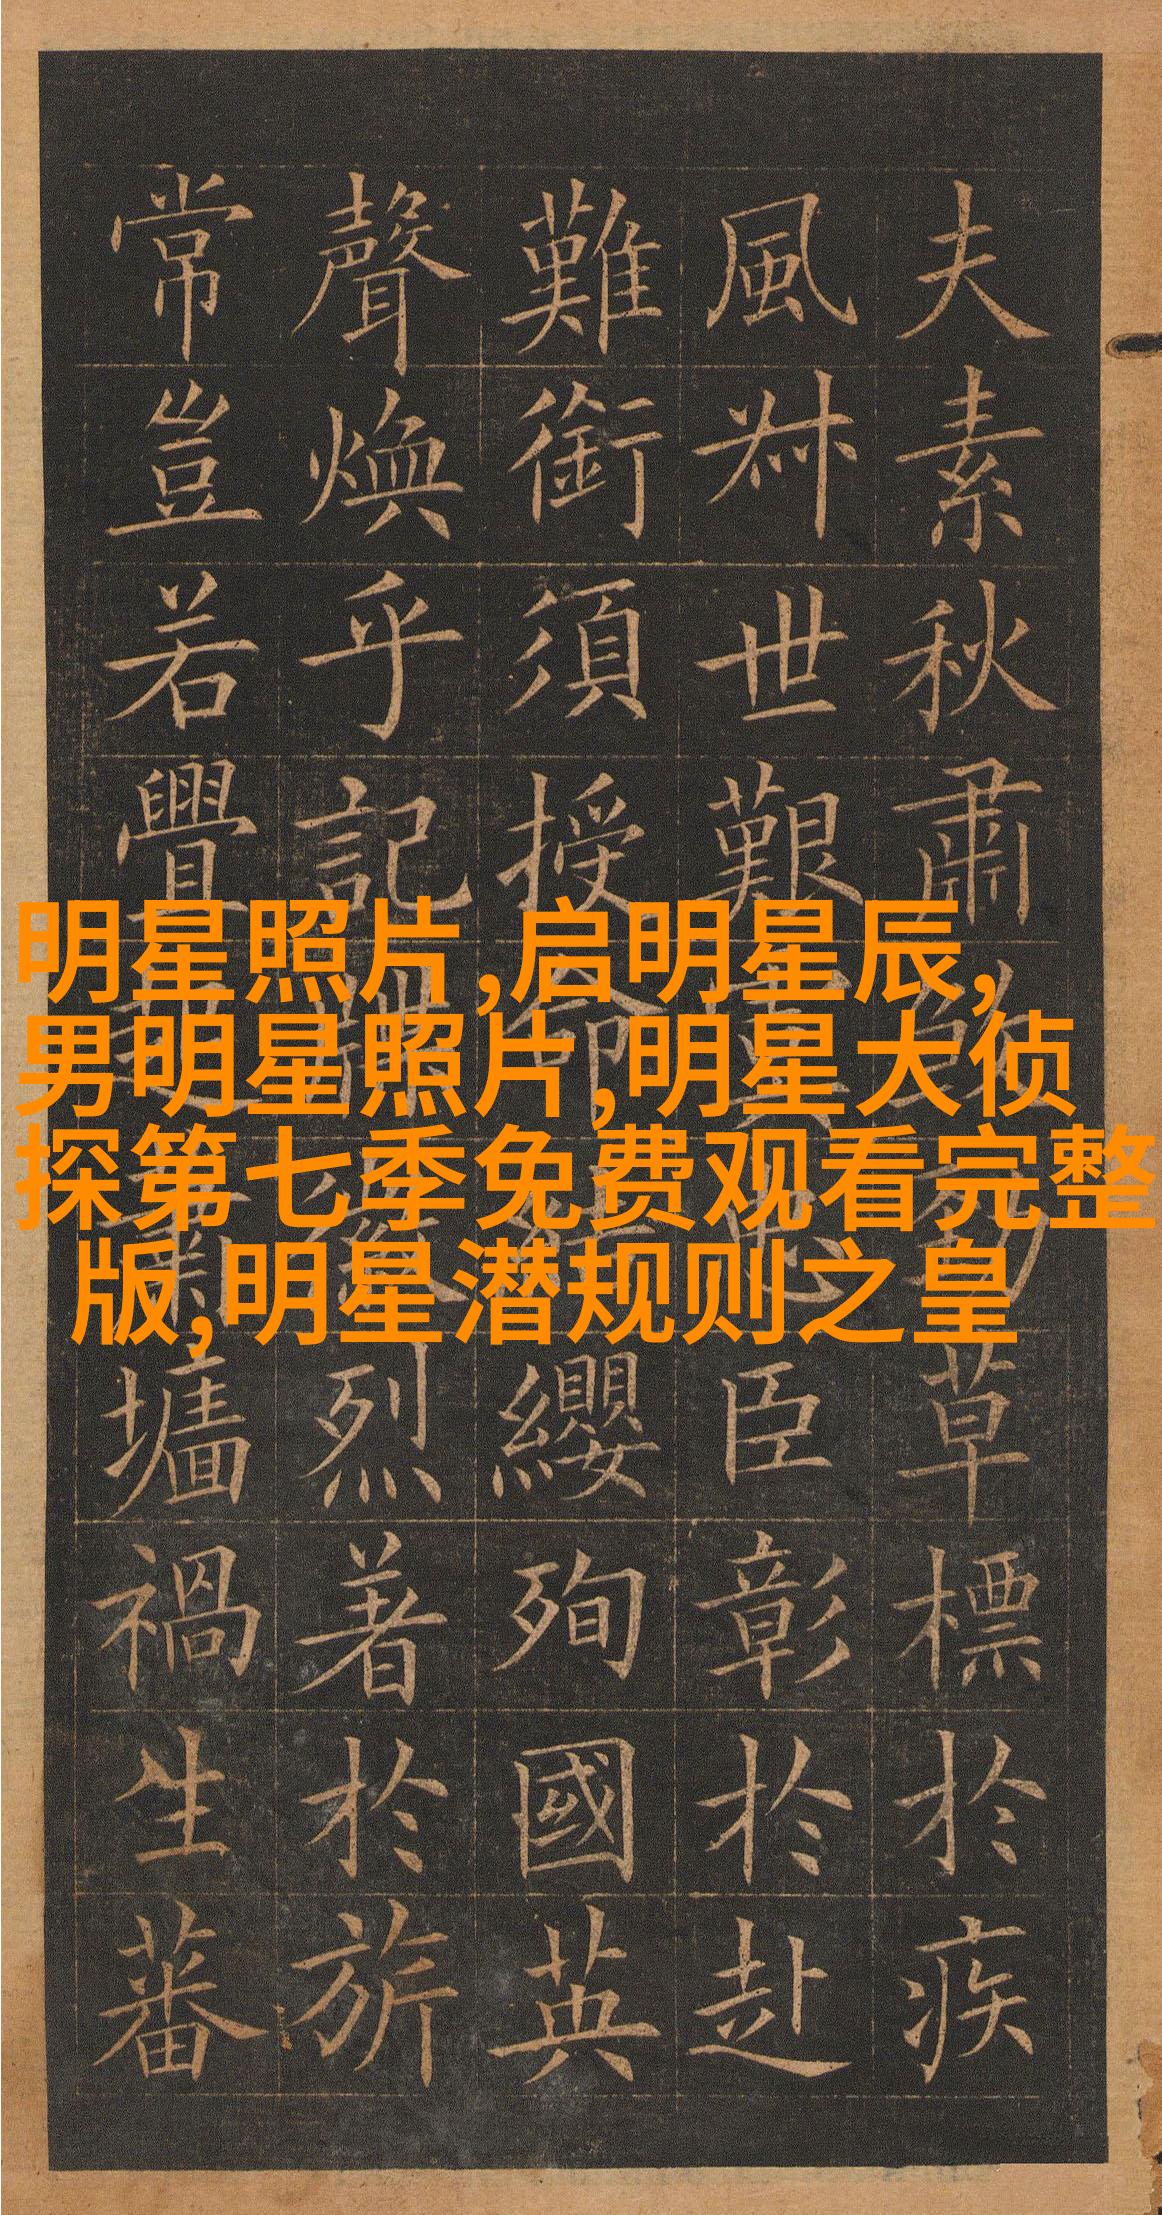 夫素秋肅煞勁草標於疾
風叔世艱虞忠臣彰於赴
難銜須授命結纓殉國英
聲煥乎記牒徽烈著於旂
常豈若舋起蕭墻禍生蕃
明星照片,启明星辰,
男明星照片,明星大侦
探第七季免费观看完整
版,明星潜规则之皇